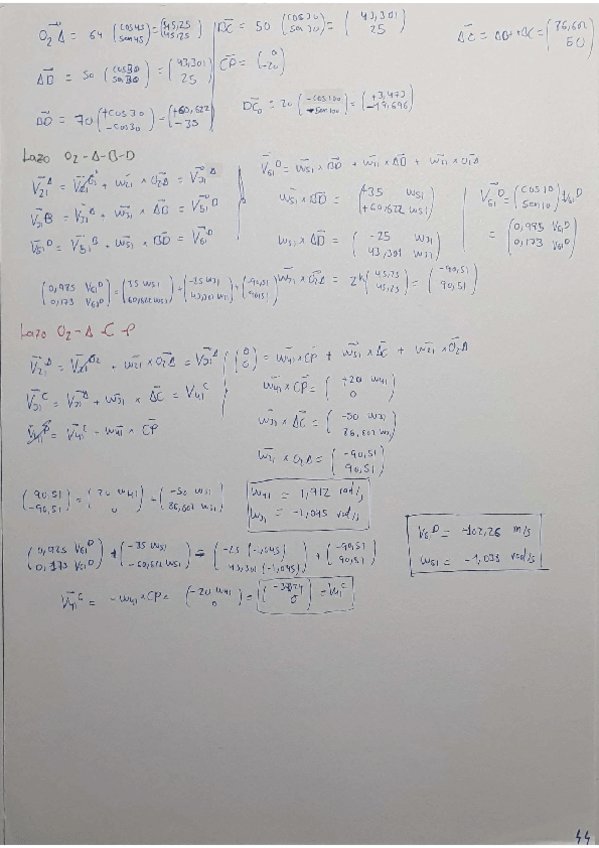 O₂A = 64 (cos45 sen45) = (45,25 45,25)
BC = 50 (cos30 sen30) = (43,301 25)
AC = AB + BC = (86,602 50)
AB = 50 (cos30 sen30) = (43,301 25)
CP = (0 -20)
BD = 70 (+cos30 -cos30) = (+60,622 -35)
DC₀ = 20 (-cos100 -sen100) = (+3,473 -19,696)
Lazo O₂-A-B-D
V₂₁ᴬ = V₂₁ᴼ² + w₂₁ × O₂A = V₃₁ᴬ
V₃₁ᴮ = V₃₁ᴬ + w₃₁ × AB = V₅₁ᴮ
V₅₁ᴰ = V₅₁ᴮ + w₅₁ × BD = V₆₁ᴰ
V₆₁ᴰ = w₅₁ × BD + w₃₁ × AB + w₂₁ × O₂A
w₅₁ × BD = (+35 w₅₁ +60,622 w₅₁)
w₃₁ × AB = (-25 w₃₁ 43,301 w₃₁)
w₂₁ × O₂A = 2k (45,25 45,25) = (-90,51 90,51)
V₆₁ᴰ = (cos10 sen10) V₆₁ᴰ
= (0,985 V₆₁ᴰ 0,173 V₆₁ᴰ)
(0,985 V₆₁ᴰ 0,173 V₆₁ᴰ) = (35 w₅₁ 60,622 w₅₁) + (-25 w₃₁ 43,301 w₃₁) + (-90,51 90,51)
Lazo O₂-A-C-P
V₂₁ᴬ = V₂₁ᴼ² + w₂₁ × O₂A = V₃₁ᴬ
V₃₁ᶜ = V₃₁ᴬ + w₃₁ × AC = V₄₁ᶜ
V₄₁ᴾ = V₄₁ᶜ + w₄₁ × CP
(0 0) = w₄₁ × CP + w₃₁ × AC + w₂₁ × O₂A
w₄₁ × CP = (+20 w₄₁ 0)
w₃₁ × AC = (-50 w₃₁ 86,602 w₃₁)
w₂₁ × O₂A = (-90,51 90,51)
(90,51 -90,51) = (20 w₄₁ 0) + (-50 w₃₁ 86,602 w₃₁)
w₄₁ = 1,912 rad/s
w₃₁ = -1,045 rad/s
(0,985 V₆₁ᴰ 0,173 V₆₁ᴰ) + (-35 w₅₁ -60,622 w₅₁) = (-25 (-1,045) 43,301 (-1,045)) + (-90,51 90,51)
V₆ᴰ = -102,26 m/s
w₅₁ = -1,035 rad/s
V₄₁ᶜ = -w₄₁ × CP = (-20 w₄₁ 0) = = V₄₁ᶜ
44